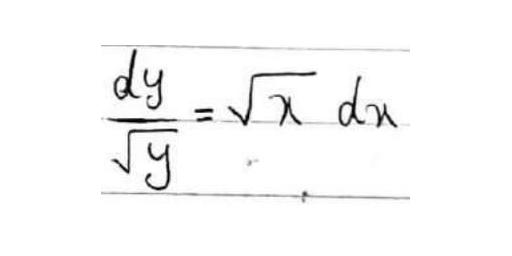 dy/√y = √x dx